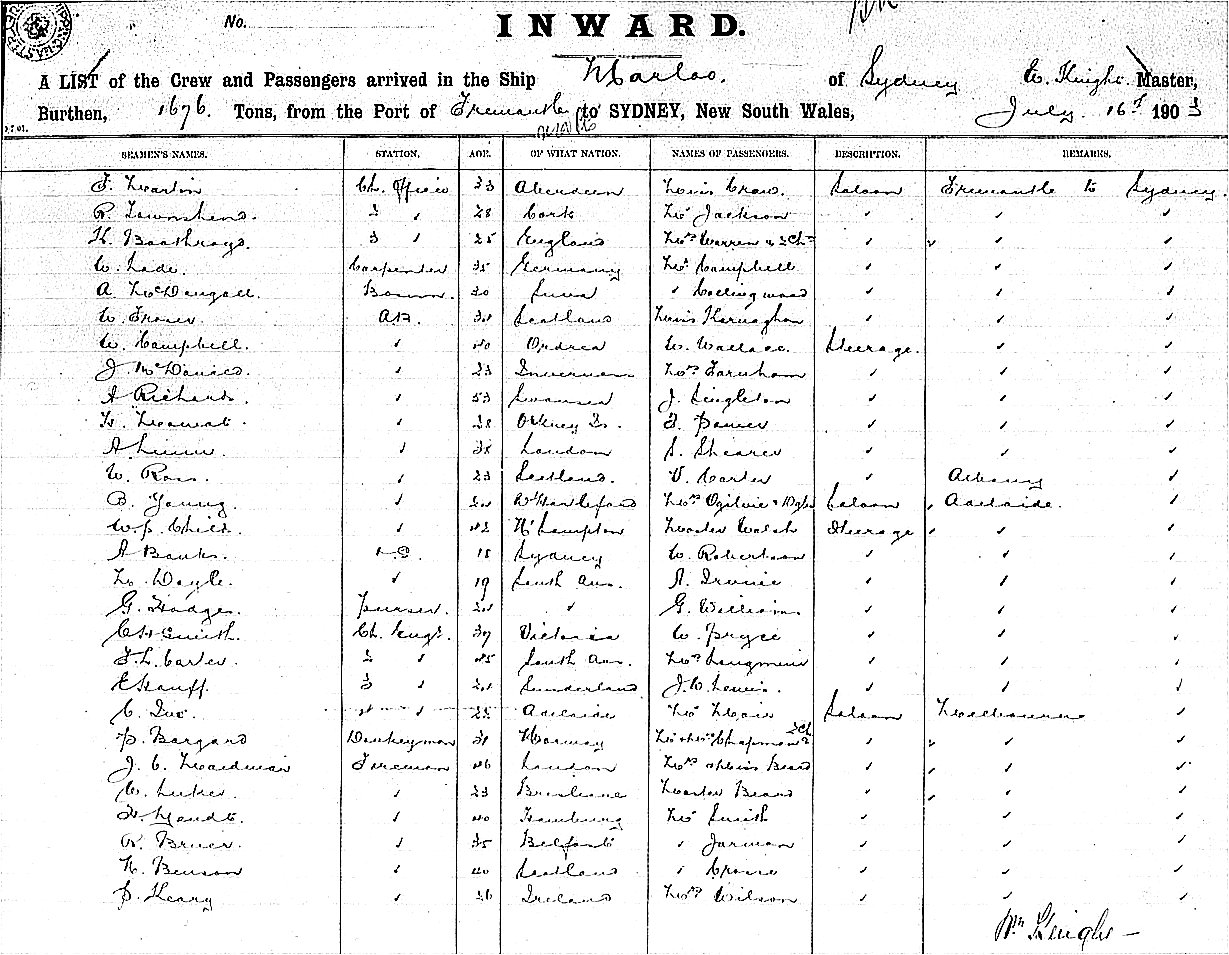 No.
INWARD.
A LIST of the Crew and Passengers arrived in the Ship Marloo. of Sydney W. Knight. Master,
Burthen, 1676. Tons, from the Port of Fremantle to SYDNEY, New South Wales, July 16th 1903
SEAMEN'S NAMES. STATION. AGE. OF WHAT NATION. NAMES OF PASSENGERS. DESCRIPTION. REMARKS.
F. Martin Ch. Officer 33 Aberdeen Miss Crow. Saloon Fremantle to Sydney.
R. Townshend. 2 " 28 Cork Mr Jackson " " "
H. Boothroyd. 3 " 25 England Mrs Warren & 2 Chn " " " "
W. Lade. Carpenter 35 Germany Mr Campbell " " "
A. McDougall. Bosun. 30 " Collingwood " " "
W. Fraser. A.B. Scotland Miss Kernaghan " " "
W. Campbell. " 40 W. Wallace. Steerage. " "
J. McDonald. " 23 Inverness Mrs Farnham " " "
A Richards. " 53 Swansea J. Singleton " " "
" 28 Orkney Is. F. " " "
A " 38 London S. Shearer " " "
W. Ross. " 23 Scotland. V. Carter " Albany "
B. Young. " Mrs Ogilvie & Saloon " Adelaide. "
W.J. Child. " 42 N'hampton Master Walsh Steerage " " "
A Banks. 18 Sydney W. Robertson " " "
M. Doyle. " 19 South Aus. A. Irvine " " "
G. Hodges. Purser. " G. William. " " "
C H Smith. Ch. Eng. 39 Victoria W. Pryce " " "
F.L. Carter. 2 " 45 South Aus. Mrs Langmuir " " "
E Hauff. 3 " Sunderland J.W. Lewis. " " "
4 " 25 Adelaide Mr Moir Saloon Melbourne "
P. Bargard Donkeyman 31 Norway Mr & Mrs Chapman 2 Ch " " " "
J. C. Hardman Fireman 46 London Mrs & Miss Beard " " " "
W. Luker. " 23 Brisbane Master Beard " " " "
H. Mendt. " 40 Hamburg Mr Smith " " "
R. Bruce. " 35 Belfast " Jarman " " "
H. Benson " 40 Scotland " " " "
P. Heary " 26 Ireland Mrs Wilson " " "
Wm Knight